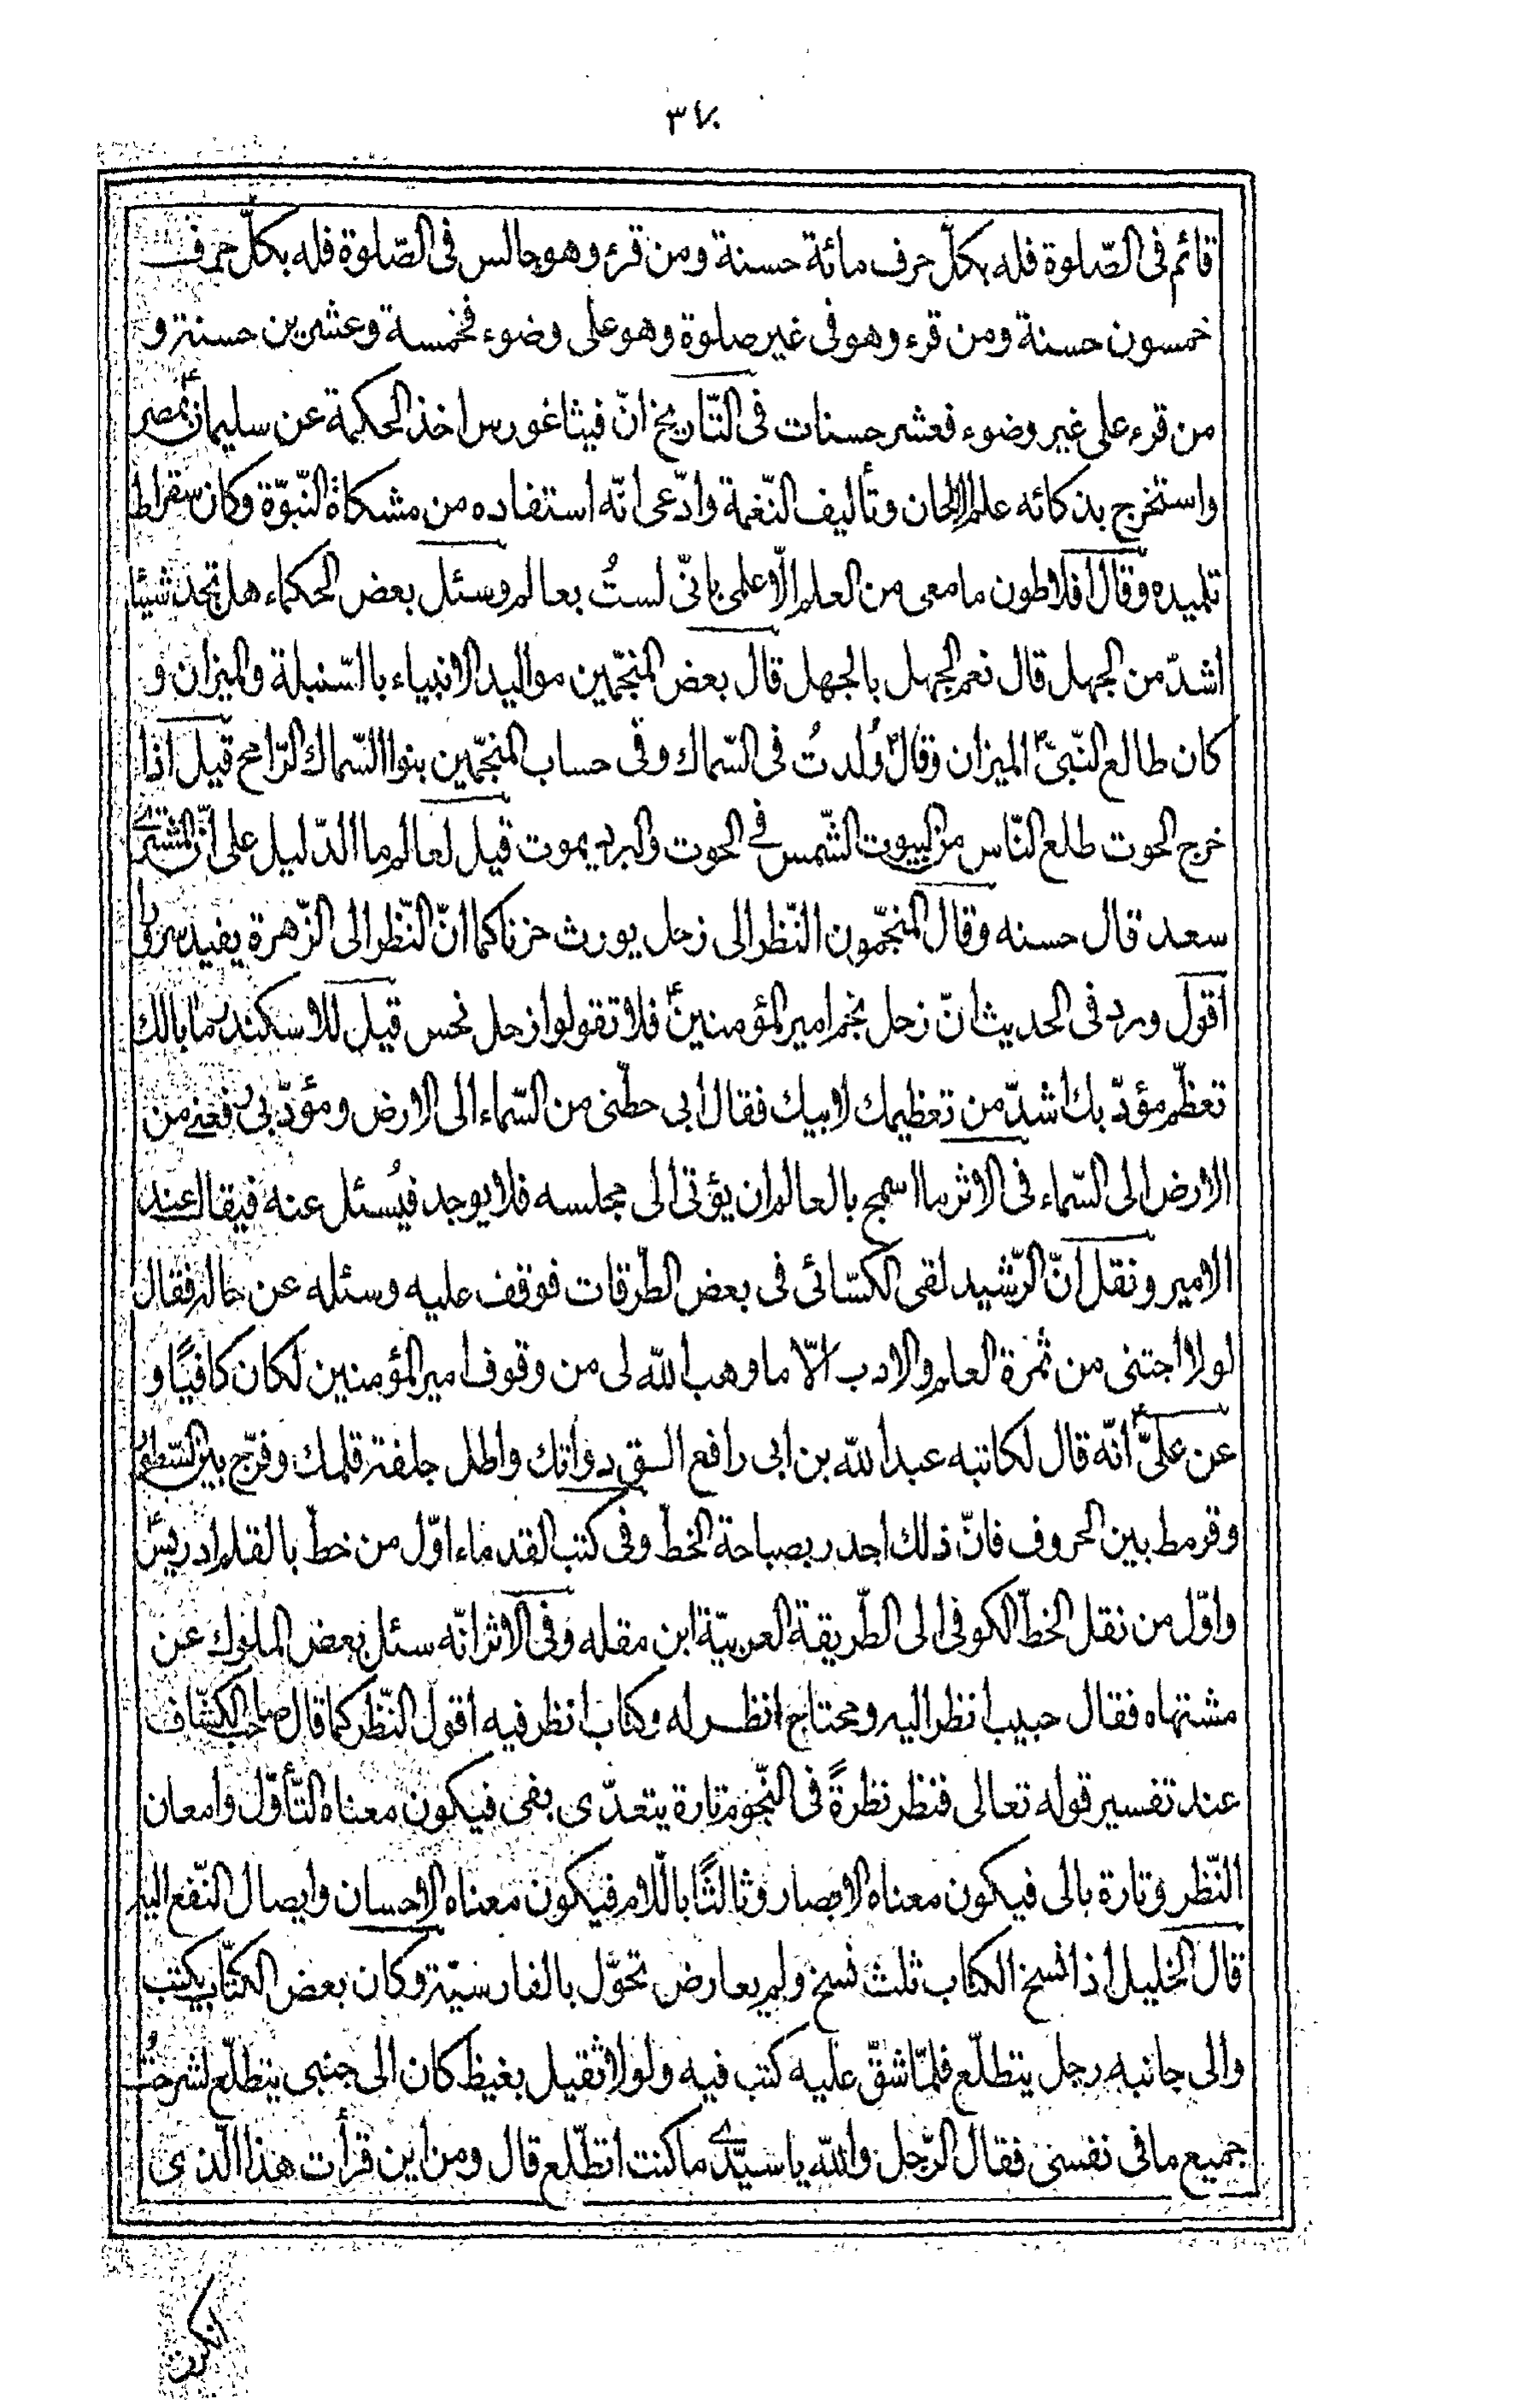 ٣٧٠
قائم فى الصّلوة فله بكلّ حرف مائة حسنة ومن قرء وهو جالس فى الصّلوة فله بكلّ حرف
خمسون حسنة ومن قرء وهو فى غير صلوة وهو على وضوء فخمسة وعشرين حسنة و
من قرء على غير وضوء فعشر حسنات فى التّاريخ انّ فيثاغورس اخذ الحكمة عن سليمان ع بمصر
واستخرج بذكائه علم الالحان وتأليف النّغمة وادّعى انّه استفاده من مشكاة النّبوّة وكان سقراط
تلميذه وقال افلاطون ما معى من العلم الّا علمى بانّى لستُ بعالم وسئل بعض الحكماء هل تجد شيئا
اشدّ من الجهل قال نعم الجهل بالجهل قال بعض المنجّمين مواليد الانبياء بالسّنبلة والميزان و
كان طالع النّبىّ الميزان وقال وُلدتُ فى السّماك وفى حساب المنجّمين بنوا السّماك الرّامح قيل اذا
خرج الحوت طلع النّاس من البيوت الشّمس فى الحوت والبرد يموت قيل لعالم ما الدّليل على انّ المشترى
سعد قال حسنه وقال المنجّمون النّظر الى زحل يورث حزنا كما انّ النّظر الى الزّهرة يفيد سرورا
اقول ورد فى الحديث انّ زحل نجم امير المؤمنين ع فلا تقولوا زحل نحس قيل للاسكندر ما بالك
تعظّم مؤدّبك اشدّ من تعظيمك لابيك فقال ابى حطّنى من السّماء الى الارض ومؤدّبى رفعنى من
الارض الى السّماء فى الاثر ما اسمج بالعالم ان يؤتى الى مجلسه فلا يوجد فيُسئل عنه فيقال عند
الامير ونقل انّ الرّشيد لقى الكسّائى فى بعض الطّرقات فوقف عليه وسئله عن حاله فقال
لولا اجتنى من ثمرة العلم والادب الّا ما وهب اللّه لى من وقوف امير المؤمنين لكان كافيًا و
عن علىّ ع انّه قال لكاتبه عبد اللّه بن ابى رافع السق دواتك واطل جلفة قلمك وفرّج بين السّطور
وقرمط بين الحروف فانّ ذلك اجدر بصباحة الخطّ وفى كتب القدماء اوّل من خطّ بالقلم ادريس ع
واوّل من نقل الخطّ الكوفى الى الطّريقة العربيّة ابن مقله وفى الاثر انّه سئل بعض الملوك عن
مشتهاه فقال حبيب انظر اليه ومحتاج انظر له وكتاب انظر فيه اقول النّظر كما قال صاحب الكشّاف
عند تفسير قوله تعالى فنظر نظرةً فى النّجوم تارة يتعدّى بفى فيكون معناه التّأوّل وامعان
النّظر وتارة بالى فيكون معناه الابصار وثالثًا باللّام فيكون معناه الاحسان وايصال النّفع اليه
قال الخليل اذا نسخ الكتاب ثلث نسخ ولم يعارض تحوّل بالفارسيّة وكان بعض الكتّاب يكتب
والى جانبه رجل يتطلّع فلمّا شقّ عليه كتب فيه ولولا ثقيل بغيظ كان الى جنبى يتطلّع لشرحتُ
جميع ما فى نفسى فقال الرّجل واللّه يا سيّدى ما كنت اتطلّع قال ومن اين قرأت هذا الّذى